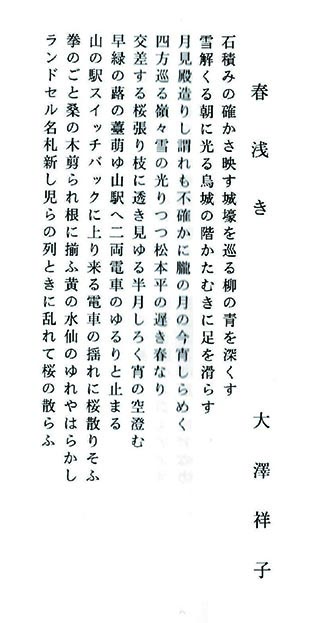 春浅き
大澤祥子
石積みの確かさ映す城壕を巡る柳の青を深くす
雪解くる朝に光る烏城の階かたむきに足を滑らす
月見殿造りし謂れも不確かに朧の月の今宵しらめく
四方巡る嶺々雪の光りつつ松本平の遅き春なり
交差する桜張り枝に透き見ゆる半月しろく宵の空澄む
早緑の蕗の薹萌ゆ山駅へ二両電車のゆるりと止まる
山の駅スイッチバックに上り来る電車の揺れに桜散りそふ
拳のごと桑の木剪られ根に揃ふ黄の水仙のゆれやはらかし
ランドセル名札新し児らの列ときに乱れて桜の散らふ